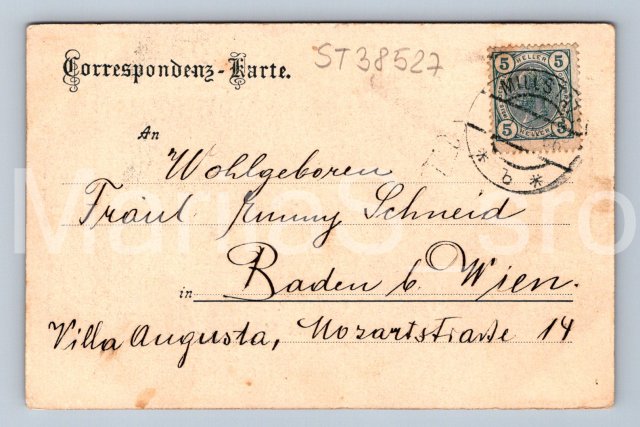 ST38527
Correspondenz-Karte.
5 HELLER 5
MILLST
5 HELLER
* b *
An
Wohlgeboren
Fräul Emmy Schneid
in Baden b. Wien.
Villa Augusta, Mozartstraße 14